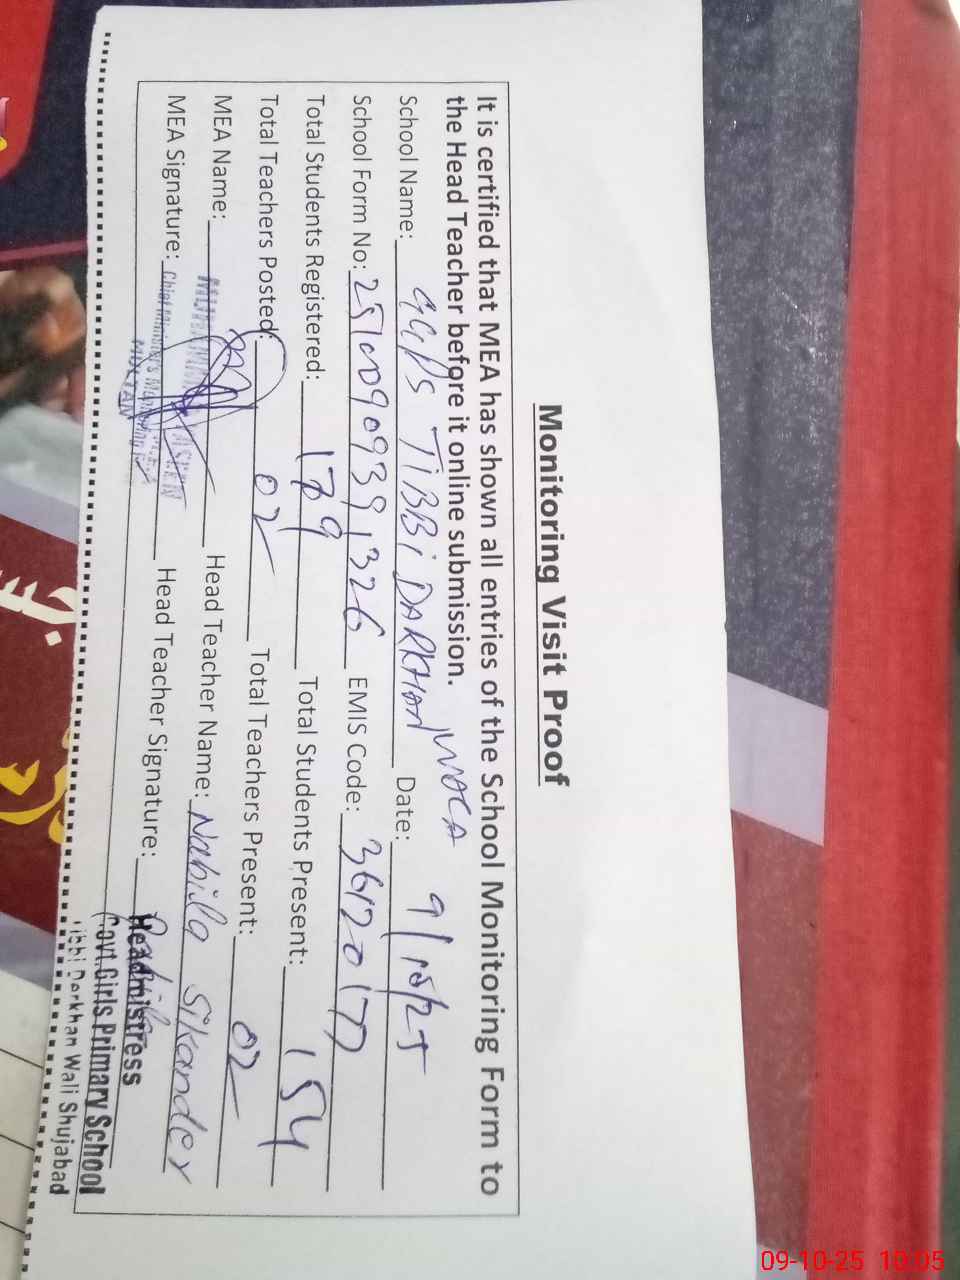 Monitoring Visit Proof
It is certified that MEA has shown all entries of the School Monitoring Form to
the Head Teacher before it online submission.
School Name: GGPS TiBBi DARKHAN WALA Date: 9/10/25
School Form No: EMIS Code: 36120177
Total Students Registered: 179 Total Students Present: 154
Total Teachers Posted: 02 Total Teachers Present: 02
MEA Name: Head Teacher Name: Nabila Sikander
MEA Signature: Head Teacher Signature:
Chief Minister's
MULTAN
Headmistress
Govt.Girls Primary School
Tibbi Darkhan Wali Shujabad
09-10-25 10:05